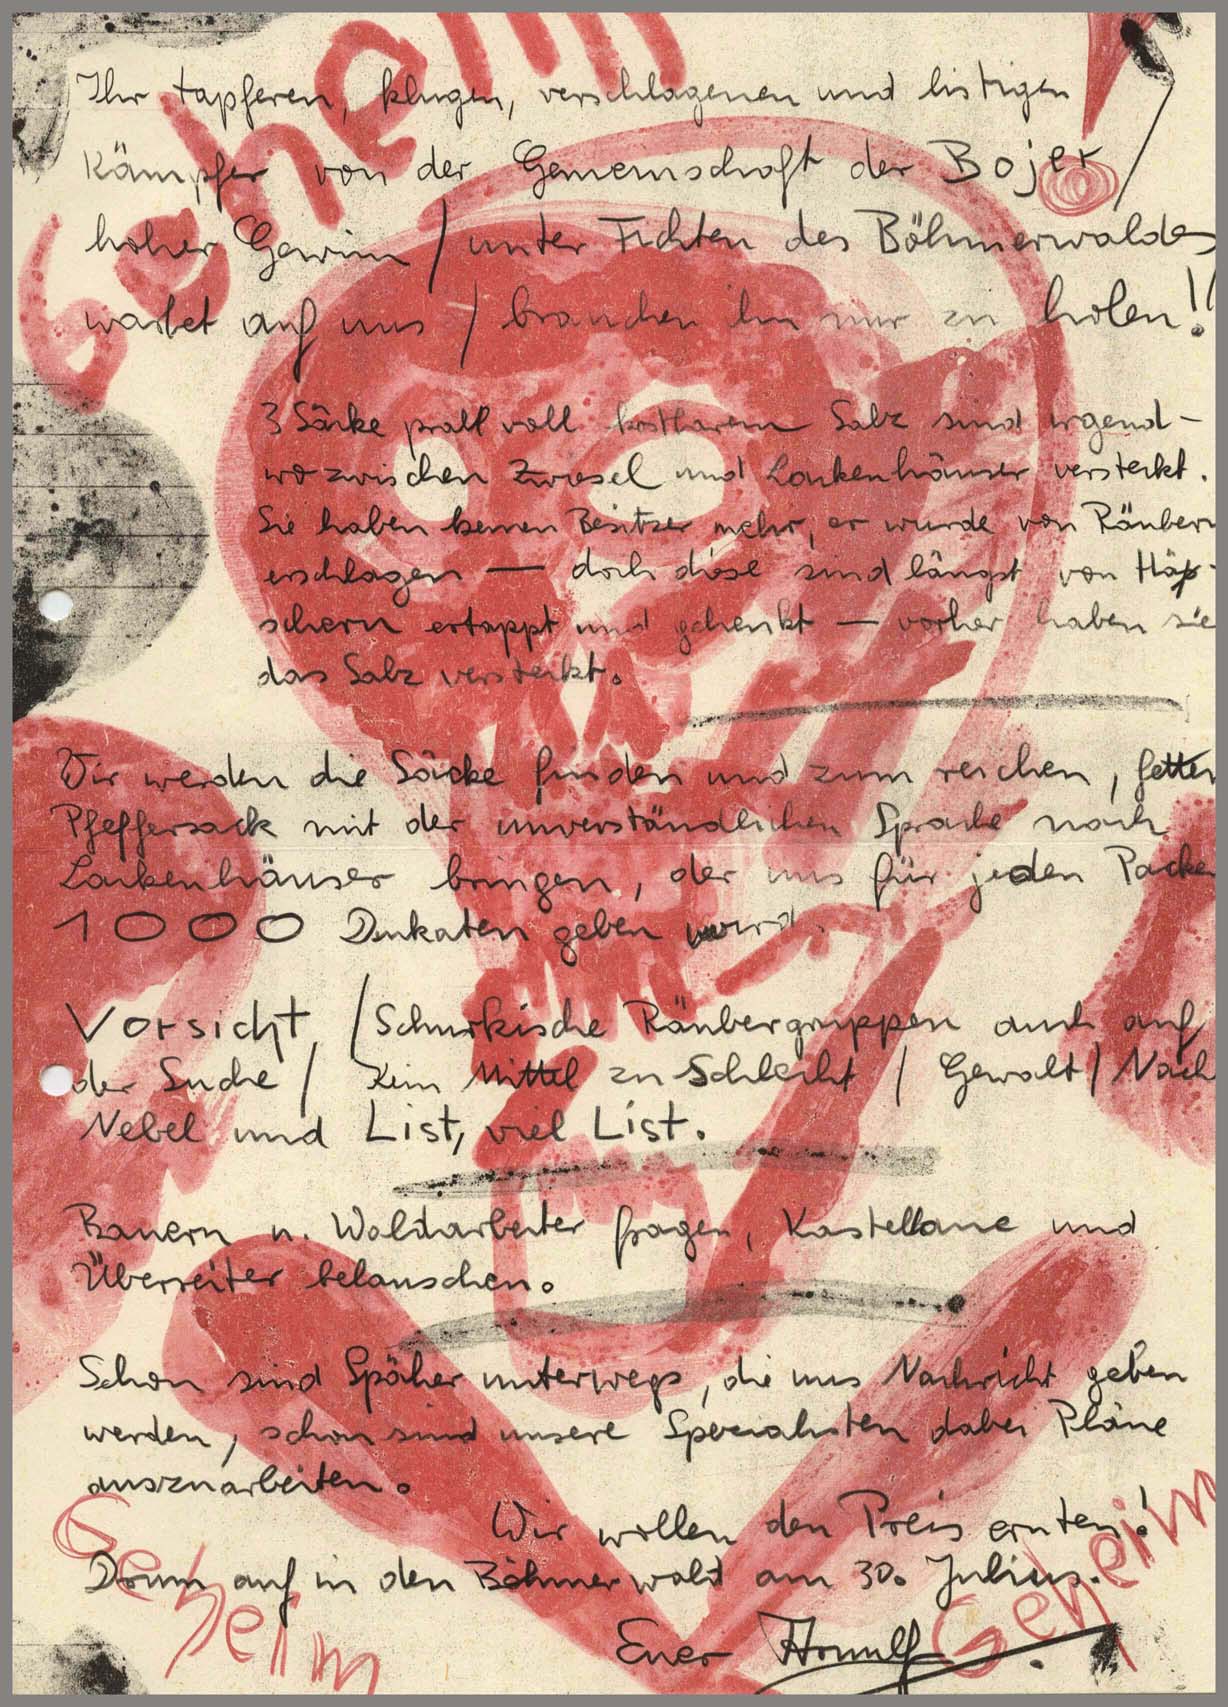 Geheim
Ihr tapferen, klugen, verschlagenen und listigen
Kämpfer von der Gemeinschaft der Bojer /
hoher Gewinn / unter Fichten des Böhmerwaldes
wartet auf uns / brauchen ihn nur zu holen!!
3 Säcke prall voll kostbarem Salz sind irgend-
wo zwischen Zwiesel und Lackenhäuser versteckt.
Sie haben keinen Besitzer mehr, er wurde von Räubern
erschlagen — doch diese sind längst von Häs-
schern ertappt und gehenkt — vorher haben sie
das Salz versteckt.
Wir werden die Säcke finden und zum reichen, fetten
Pfeffersack mit der unverständlichen Sprache nach
Lackenhäuser bringen, der uns für jeden Packen
1000 Dukaten geben wird.
Vorsicht, / Schurkische Räubergruppen auch auf
der Suche / Kein Mittel zu Schlecht / Gewalt / Nach
Nebel und List, viel List.
Bauern u. Waldarbeiter fragen, Kastellane und
Überreiter belauschen.
Schon sind Späher unterwegs, die uns Nachricht geben
werden, schon sind unsere Spezialisten dabei Pläne
auszuarbeiten.
Wir wollen den Preis ernten!
Drum auf in den Böhmerwald am 30. Julius.
Euer Arnulf
Geheim
Geheim